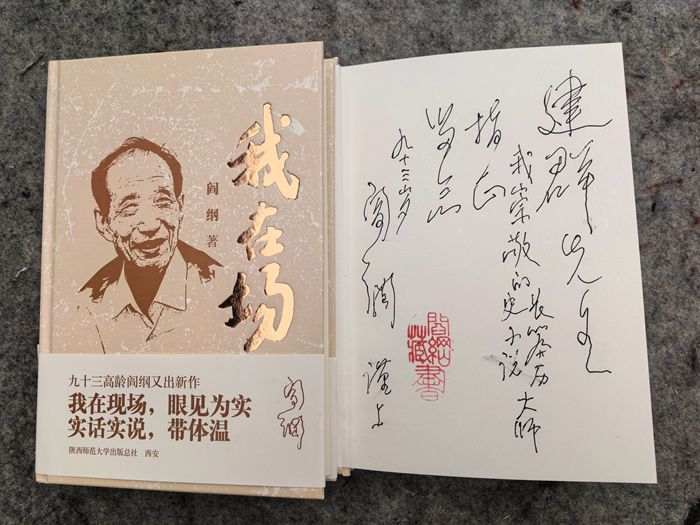 我在场
阎纲 著
九十三高龄阎纲又出新作
我在现场，眼见为实
实话实说，带体温
陕西师范大学出版总社 西安
阎纲
建群先生
我崇敬的长篇历史小说大师
指正
九十三岁
阎纲 谨上
閻綱藏書